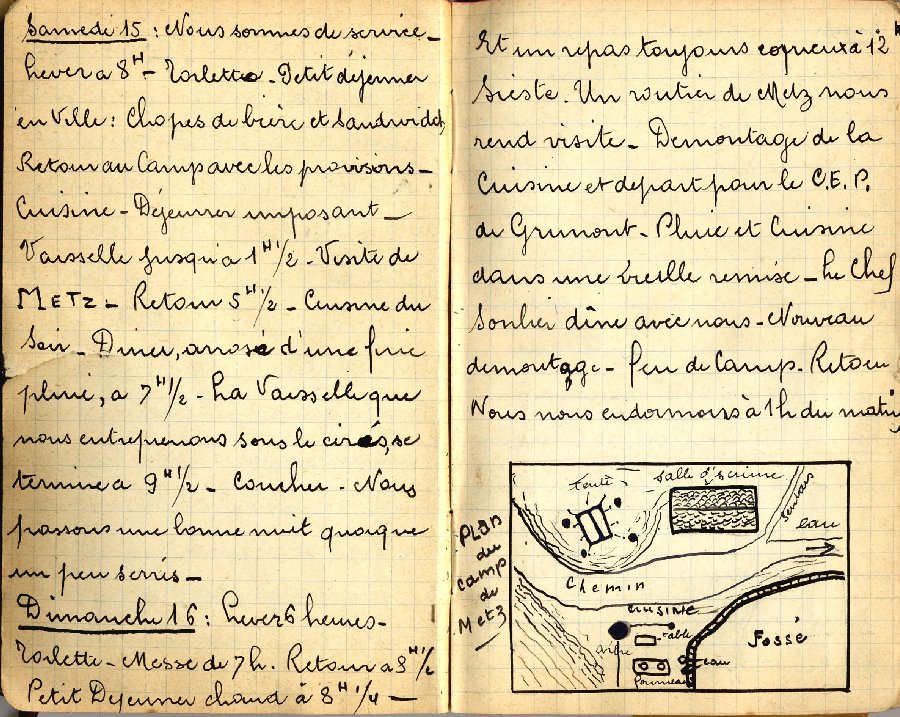 Samedi 15 : Nous sommes de service -
Lever à 8H - Toilette - Petit déjeuner
en Ville : Chopes de bière et Sandwichs
Retour au Camp avec les provisions -
Cuisine - Déjeuner imposant -
Vaisselle jusqu'à 1H1/2 - Visite de
METZ - Retour 5H1/2 - Cuisine du
Soir - Diner, arrosé d'une fine
pluie, a 7H1/2 - La Vaisselle que
nous entreprenons sous le cirés, se
termine a 9H1/2 - Coucher - Nous
passons une bonne nuit quoique
un peu serrés -
Dimanche 16 : Lever 6 heures -
Toilette - Messe de 7h. Retour a 8H1/2
Petit Dejeuner chaud à 8H1/4 -
Et un repas toujours copieux à 12h
Sieste. Un routier de Metz nous
rend visite - Demontage de la
Cuisine et depart pour le C.E.P.
de Grimont - Pluie et Cuisine
dans une vieille remise - Le Chef
Soulier dîne avec nous - Nouveau
demontage - Feu de Camp. Retour
Nous nous endormons à 1h du matin
PLAN
du
Camp
de
Metz
tente
Salle d'escrime
eau
Chemin
cuisine
table
eau
Fourneau
Fossé